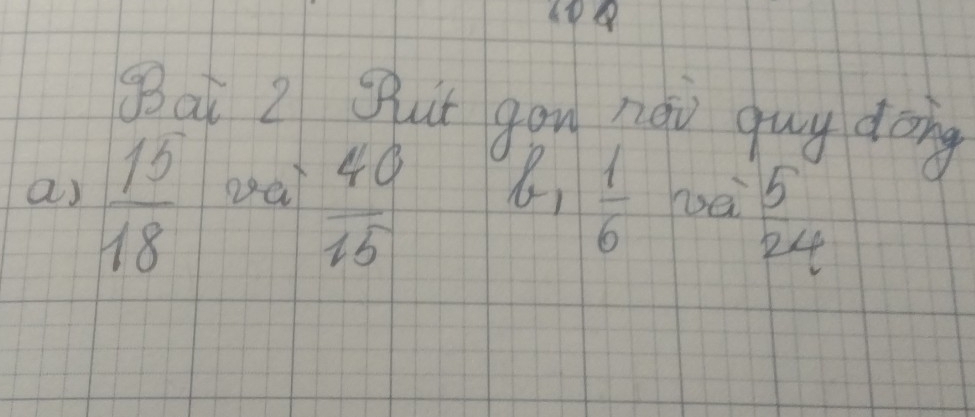 Bài 2 Rút gọn rồi quy đồng
a) 15/18 và 40/15 b, 1/6 và 5/24